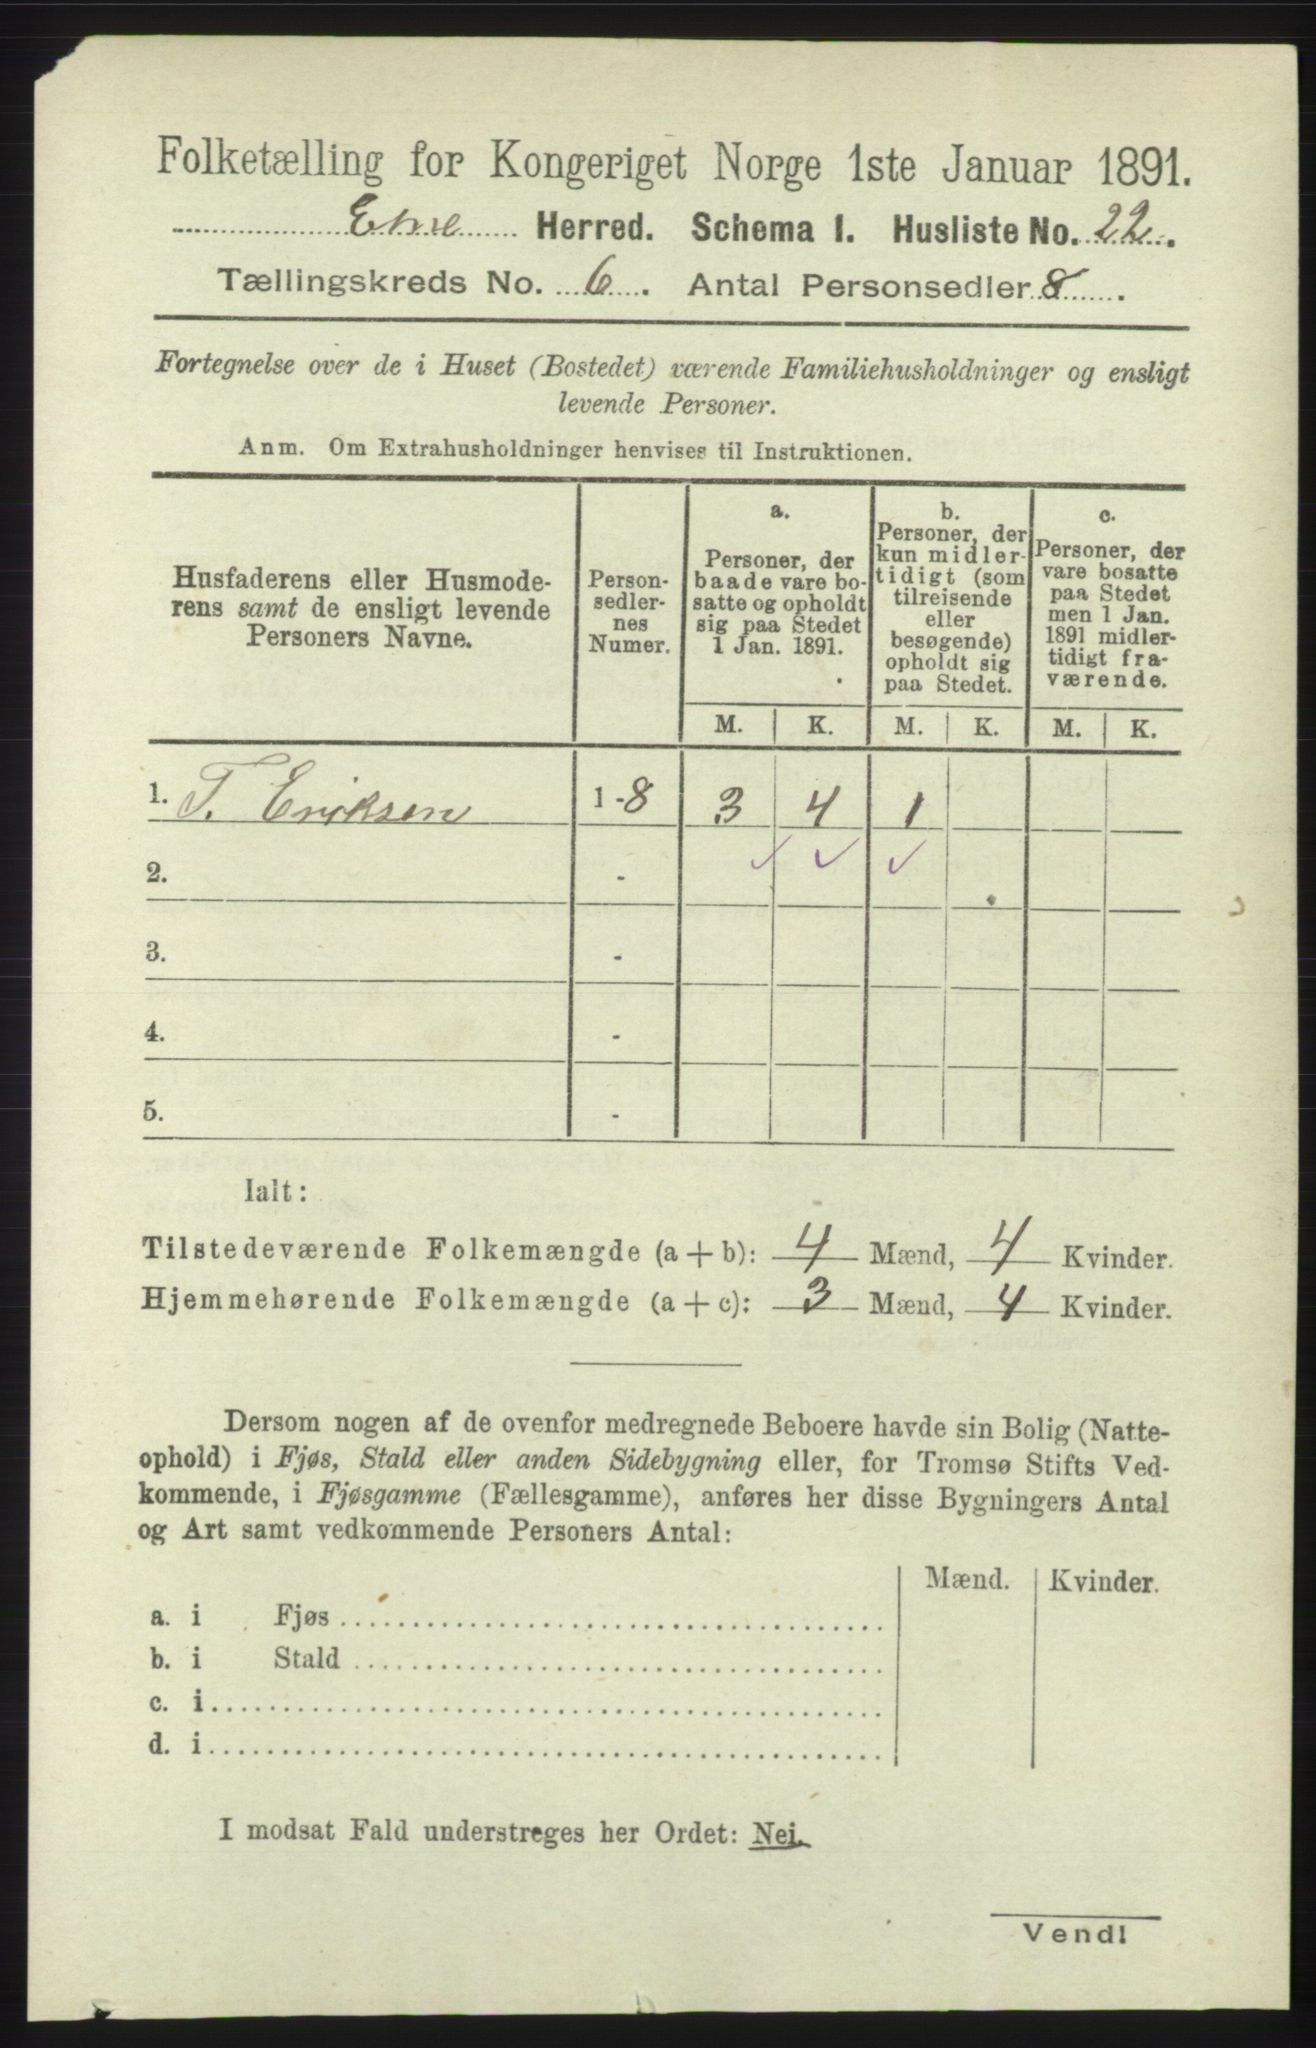 Folketælling for Kongeriget Norge 1ste Januar 1891.
Etne Herred. Schema I. Husliste No. 22.
Tællingskreds No. 6. Antal Personsedler 8.
Fortegnelse over de i Huset (Bostedet) værende Familiehusholdninger og ensligt
levende Personer.
Anm. Om Extrahusholdninger henvises til Instruktionen.
Husfaderens eller Husmode-
rens samt de ensligt levende
Personers Navne.
Person-
sedler-
nes
Numer.
a.
Personer, der
baade vare bo-
satte og opholdt
sig paa Stedet
1 Jan. 1891.
b.
Personer, der
kun midler-
tidigt (som
tilreisende
eller
besøgende)
opholdt sig
paa Stedet.
c.
Personer, der
vare bosatte
paa Stedet
men 1 Jan.
1891 midler-
tidigt fra-
værende.
M. K. M. K. M. K.
1. T. Eriksen 1-8 3 4 1
2. -
3. -
4. -
5. -
Ialt:
Tilstedeværende Folkemængde (a + b): 4 Mænd, 4 Kvinder.
Hjemmehørende Folkemængde (a + c): 3 Mænd, 4 Kvinder.
Dersom nogen af de ovenfor medregnede Beboere havde sin Bolig (Natte-
ophold) i Fjøs, Stald eller anden Sidebygning eller, for Tromsø Stifts Ved-
kommende, i Fjøsgamme (Fællesgamme), anføres her disse Bygningers Antal
og Art samt vedkommende Personers Antal:
Mænd. Kvinder.
a. i Fjøs
b. i Stald
c. i
d. i
I modsat Fald understreges her Ordet: Nei.
Vend!